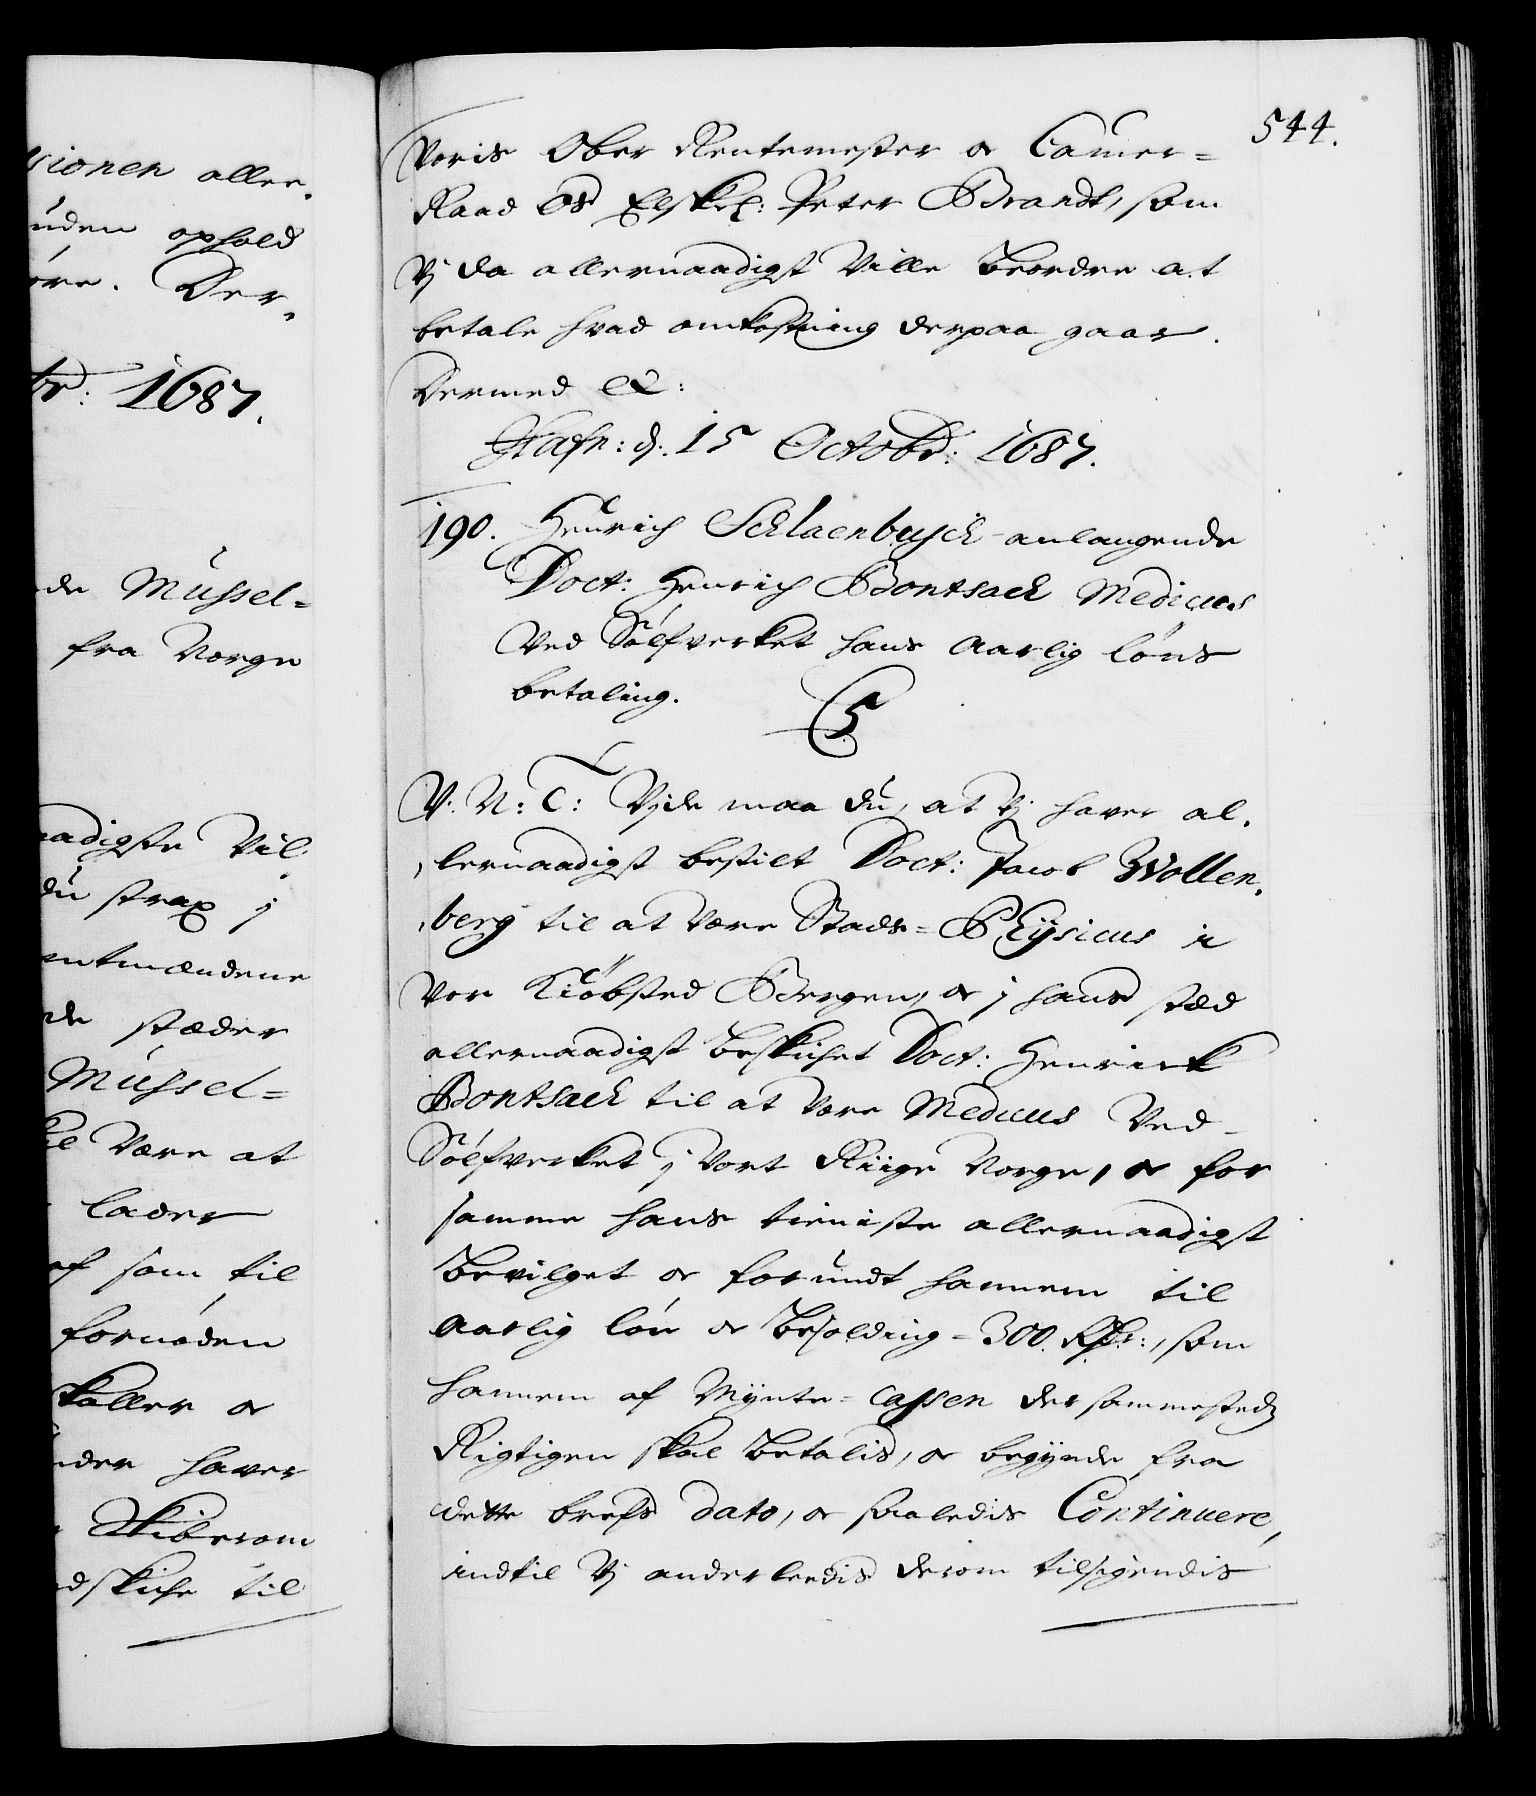 sionen aller-
uden ophold
øre. Der-
br: 1687.
de Mussel=
fra Norge
naadigste Vil
du strax j
entmændene
de stæder
Mussel=
Være at
lader
af som til
fornøden
skaller oc
nden haver
Skiberom
dskiche til
544.
Voris Ober Rentemester oc Camer=
Raad Os Elskel: Peter Brandt, som
Vj da allernaadigst Ville beordre at
betale hvad omkostning derpaa gaar.
Dermed etc:
Hafn: d. 15 Octobr: 1687.
190. Henrich Schlaenbusch anlangende
Doct: Henrich Bontsach Medicus
Ved Sølfverket hans Aarlig løns
betaling.
C5
V. N: T: Vjde maa du, at Vj haver al-
lernaadigst bestilt Doct: Jacob Wollen-
berg til at være Stads=Physicus i
Vor Kiøbsted Bergen, oc j hans stæd
allernaadigst beskichet Doct: Henrick
Bontsach til at være Medicus Ved
Sølfverket j Vort Riige Norge, oc for
samme hans tieniste allernaadigst
bevilget oc forundt hannem til
Aarlig løn oc besolding = 300. Rdr:, som
hannem af Mynte=Cassen der sammesteds
Rigtigen skal betalis, oc begynde fra
dette brefs dato, oc saaledis Continuere,
indtil Vj anderleedis derom tilsigendis